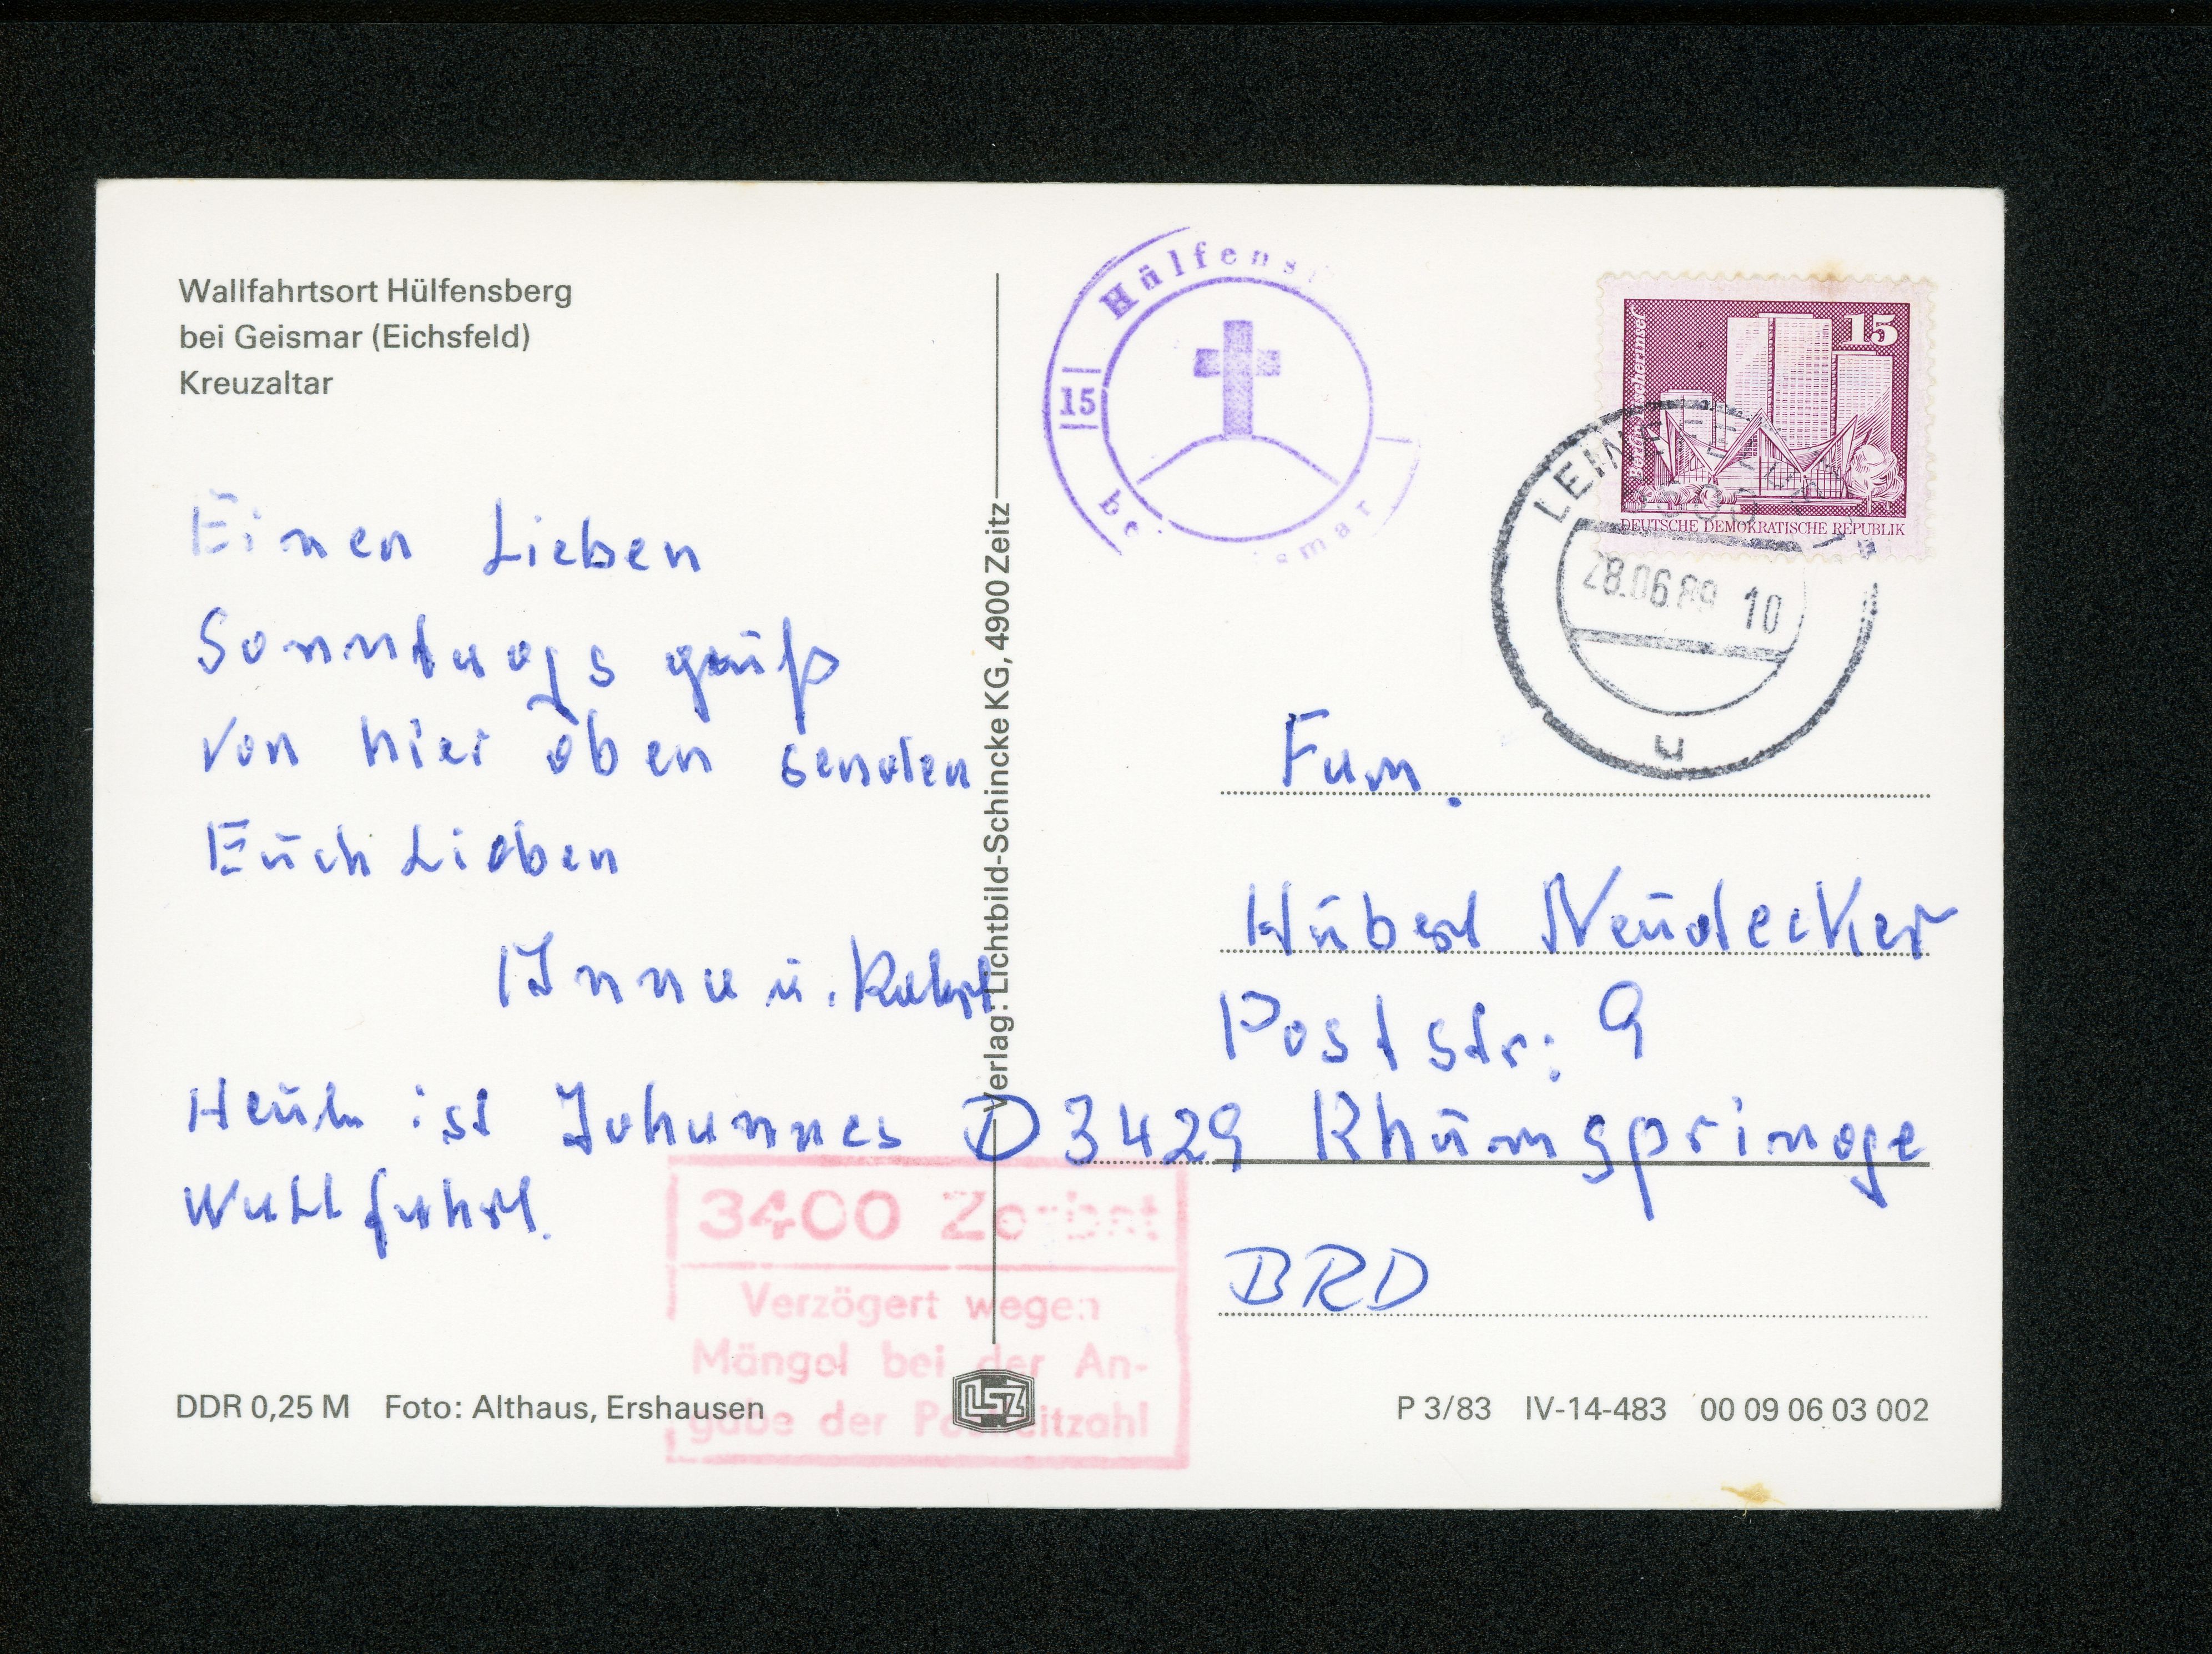 Wallfahrtsort Hülfensberg
bei Geismar (Eichsfeld)
Kreuzaltar
Einen Lieben
Sonntags gruß
von hier oben senden
Euch Lieben
Anna u.
Heute ist Johannes
Wallfahrt.
DDR 0,25 M Foto: Althaus, Ershausen
Verlag: Lichtbild-Schincke KG, 4900 Zeitz
LSZ
Hülfens
15
bei ismar
15
Berlin-Fischerinsel
DEUTSCHE DEMOKRATISCHE REPUBLIK
28.06.89 10
u
Fam.
Hubert Neudecker
Poststr: 9
D 3429 Rhumspringe
BRD
3400 Zerbst
Verzögert wegen
Mängel bei der An-
gabe der Postleitzahl
P 3/83 IV-14-483 00 09 06 03 002